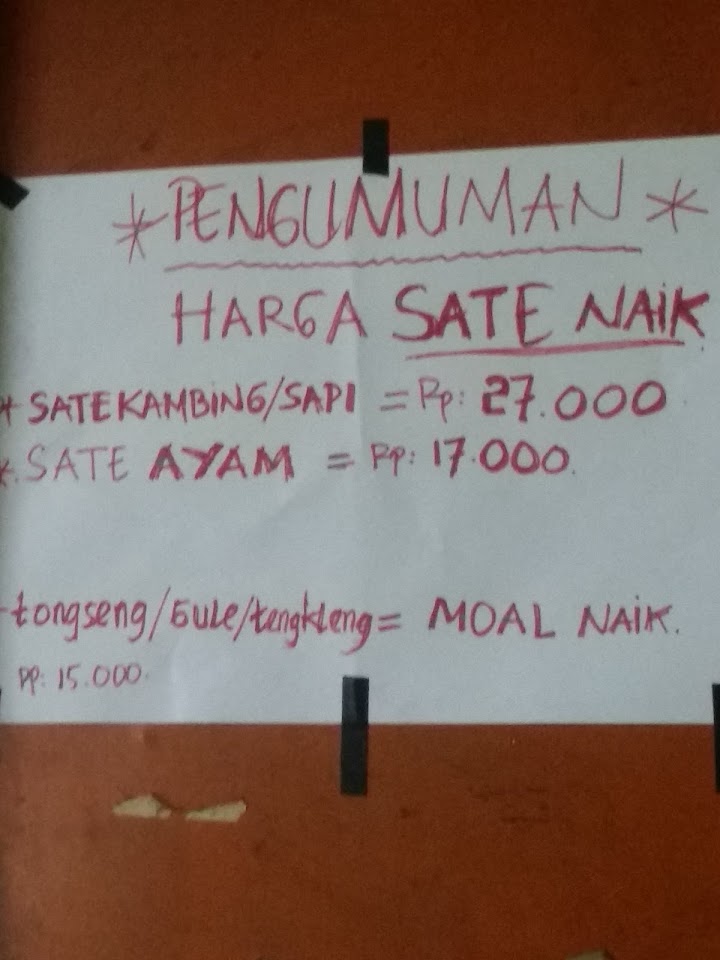 * PENGUMUMAN *
HARGA SATE NAiK
* SATE KAMBiNG/SAPI = Rp: 27.000
*. SATE AYAM = Rp: 17.000.
-tongseng/Gule/tengkleng = MOAL NAiK.
Rp: 15.000.